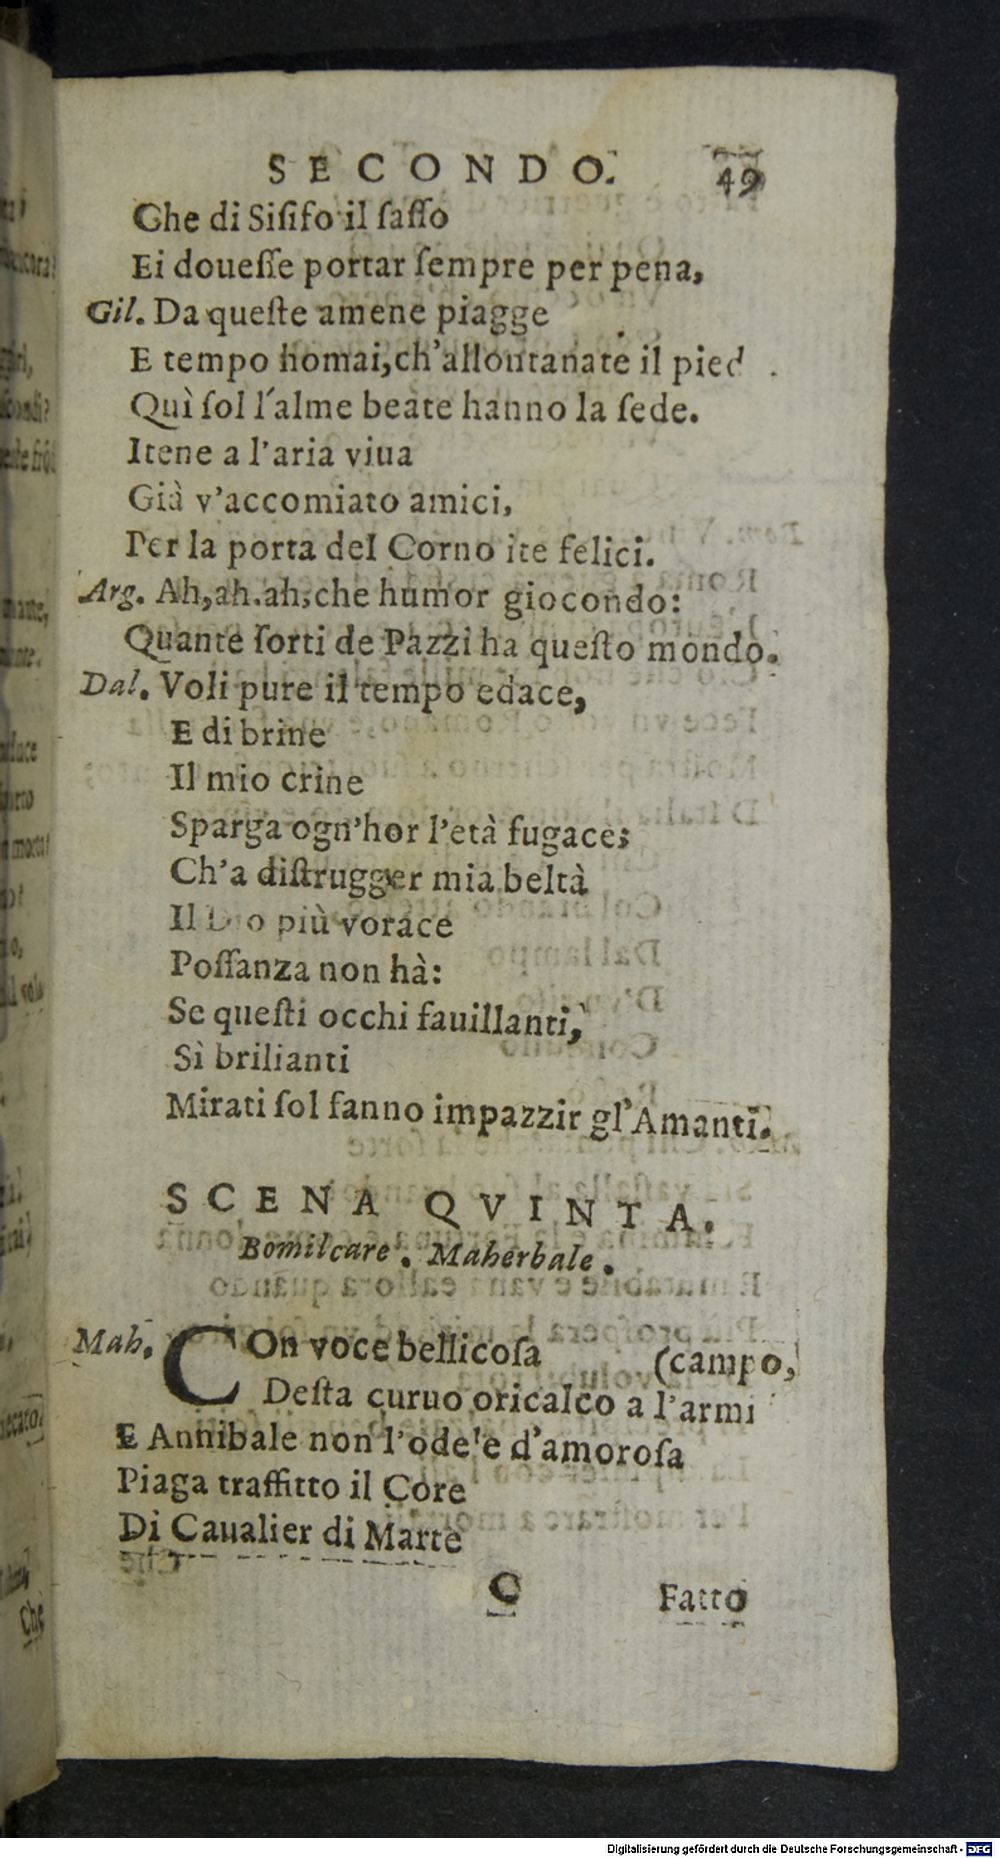 SECONDO. 49
Che di Siſifo il ſaſſo
Ei doueſſe portar ſempre per pena,
Gil. Da queſte amene piagge
E tempo homai, ch'allontanate il pied
Quì ſol l'alme beate hanno la ſede.
Itene a l'aria viua
Già v'accomiato amici,
Per la porta del Corno ite felici.
Arg. Ah, ah. ah, che humor giocondo:
Quante ſorti de Pazzi ha queſto mondo.
Dal. Voli pure il tempo edace,
E di brine
Il mio crine
Sparga ogn'hor l'età fugace;
Ch'a diſtrugger mia beltà
Il D o più vorace
Poſſanza non hà:
Se queſti occhi fauillanti,
Sì brilianti
Mirati ſol fanno impazzir gl'Amanti.
SCENA QVINTA.
Bomilcare. Maherbale.
Mah. COn voce bellicoſa (campo,
Deſta curuo oricalco a l'armi
E Annibale non l'ode'e d'amoroſa
Piaga traffitto il Core
Di Caualier di Marte
C Fatto
Che
Digitalisierung gefördert durch die Deutsche Forschungsgemeinschaft - DFG